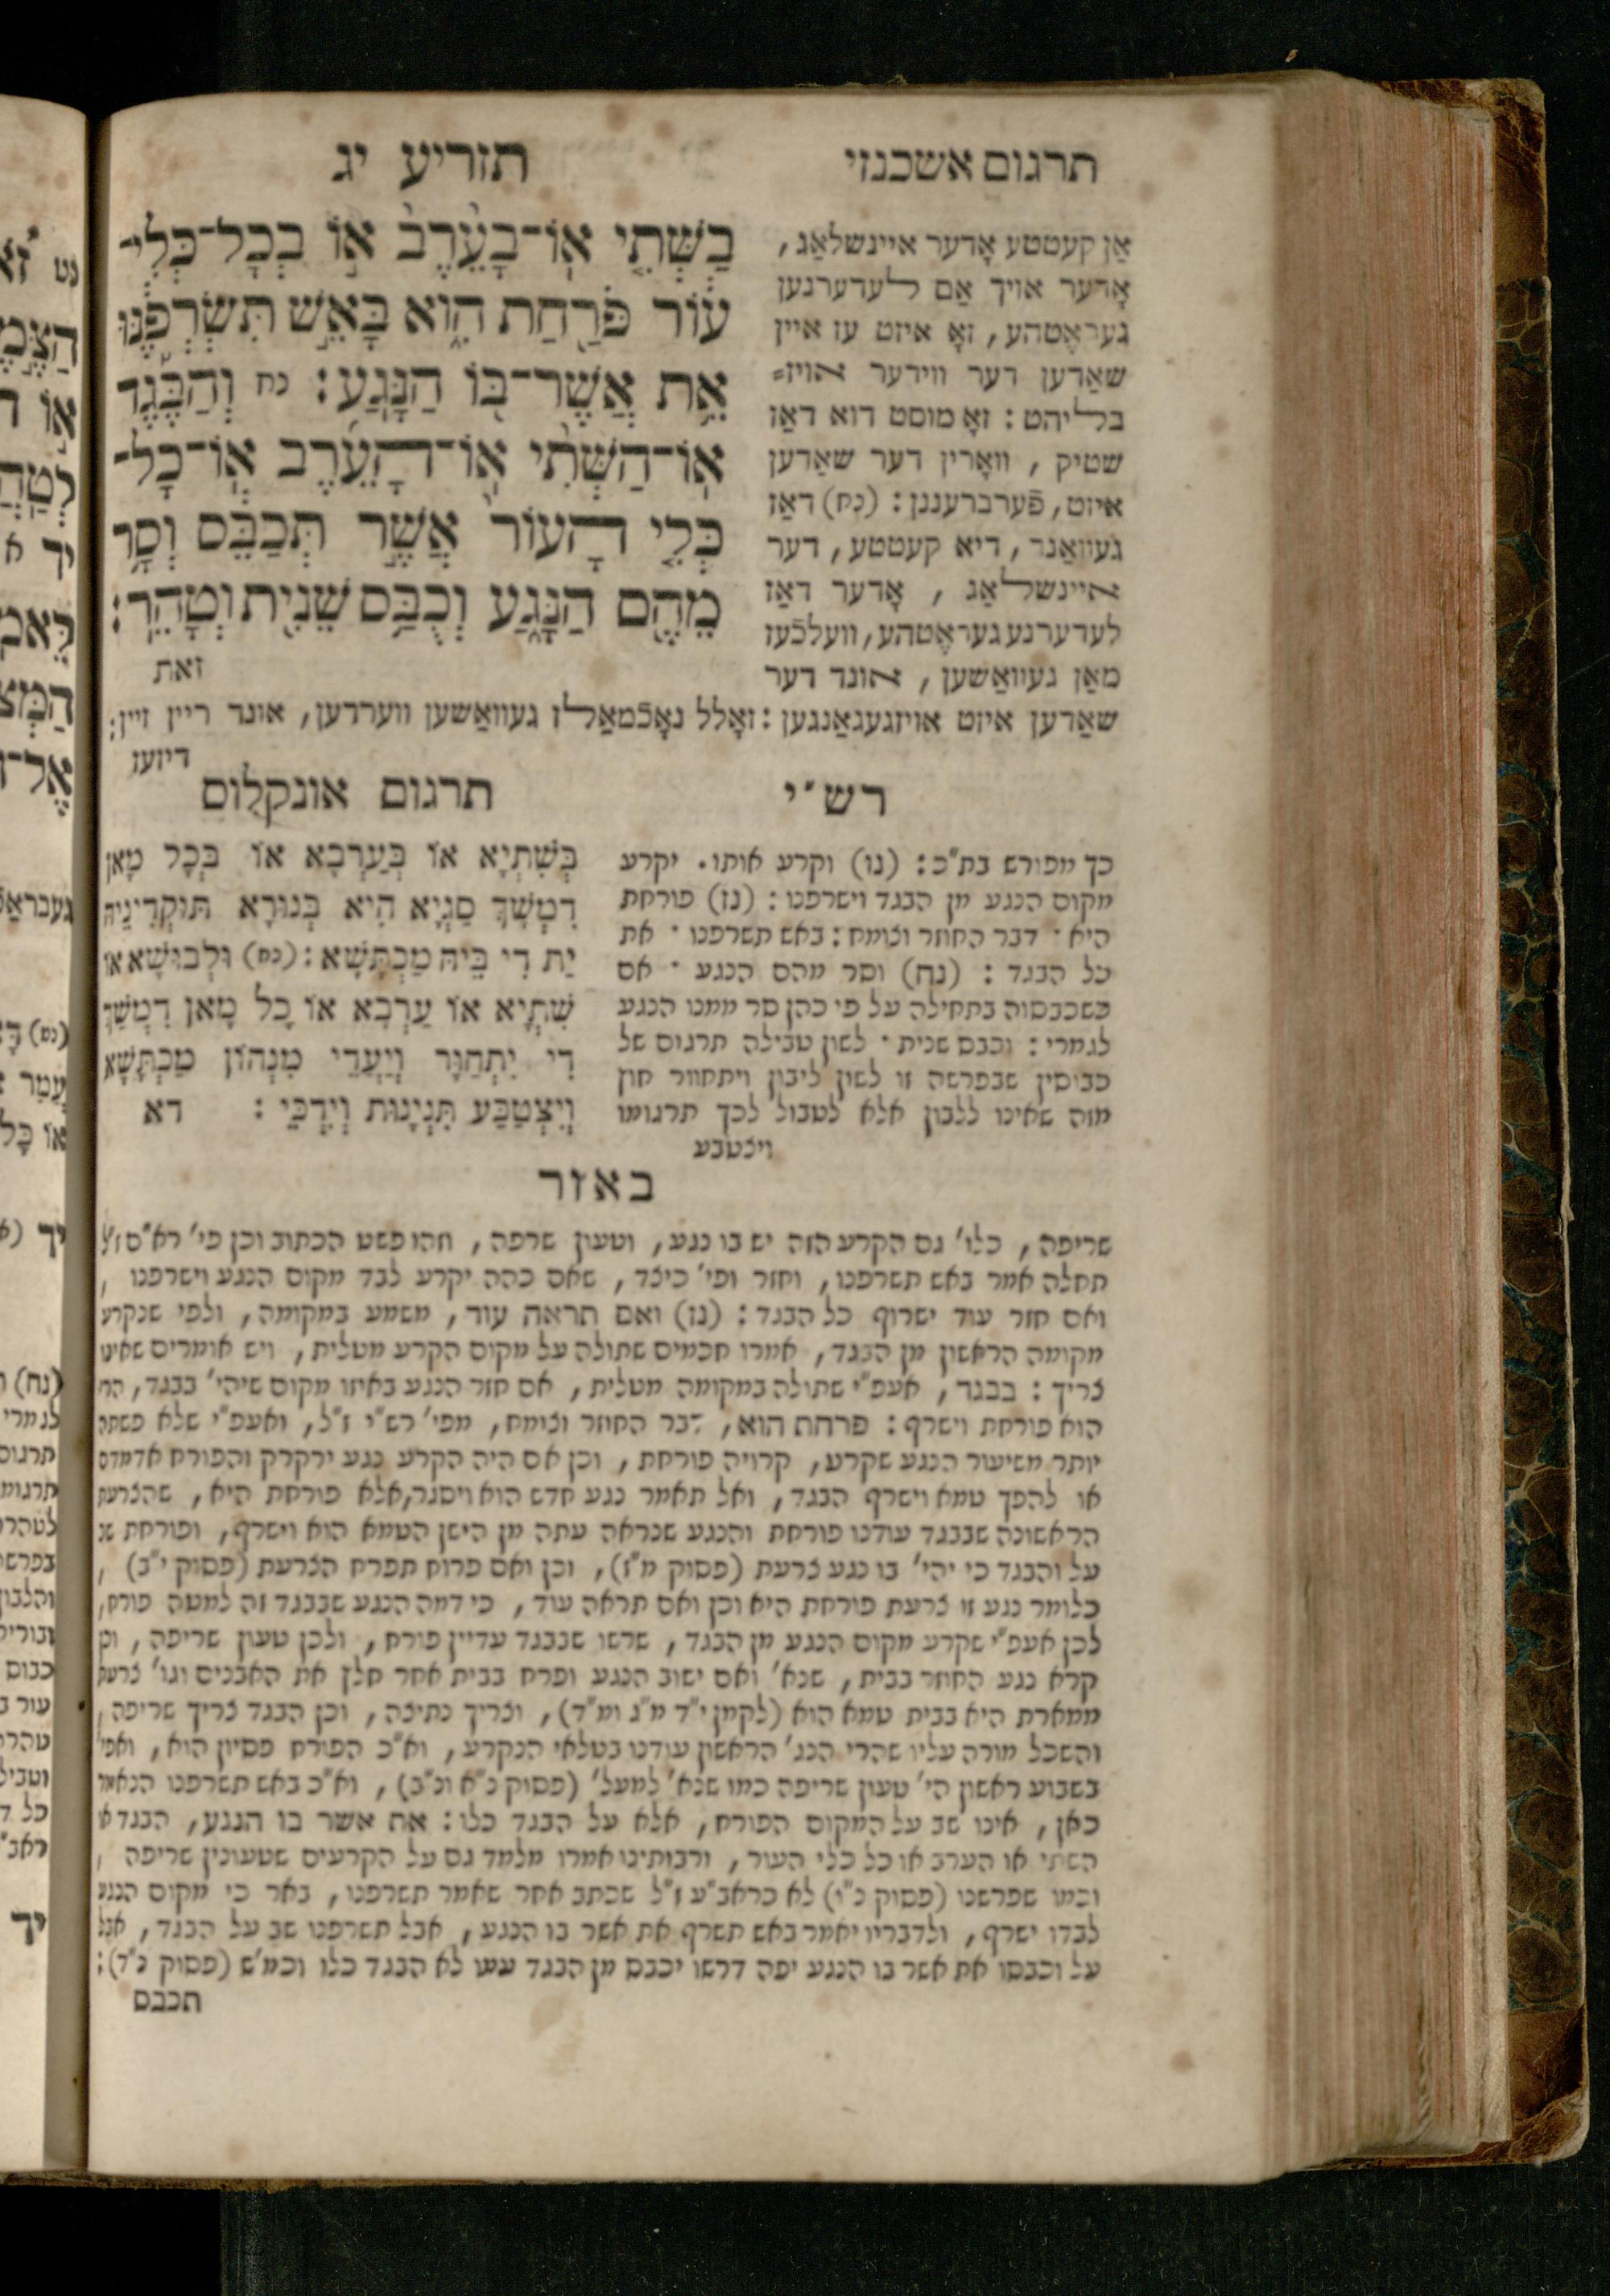 תרגום אשכנזי
תזריע יג
בַשְּׁתִ֤י אֽוֹ־בָעֵ֙רֶב֙ א֣וֹ בְכָל־כְּלִי־
ע֔וֹר פֹּרַ֖חַת הִ֑וא בָּאֵ֣שׁ תִּשְׂרְפֶ֔נּוּ
אֵ֥ת אֲשֶׁר־בּ֖וֹ הַנָּֽגַע׃ נח וְהַבֶּ֡גֶד
אֽוֹ־הַשְּׁתִ֨י אֽוֹ־הָעֵ֜רֶב אֽוֹ־כָל־
כְּלִ֤י הָעוֹר֙ אֲשֶׁ֣ר תְּכַבֵּ֔ס וְסָ֥ר
מֵהֶ֖ם הַנָּ֑גַע וְכֻבַּ֥ס שֵׁנִ֖ית וְטָהֵֽר׃
זאת
אָן קעטטע אָדער איינשלאַג,
אָדער אויך אַם לעדערנען
געראֶטהע, זאָ איזט עז איין
שאַדען דער ווידער אויז=
בליהט: זאָ מוסט דוא דאַז
שטיק, וואָרין דער שאַדען
איזט, פֿערברעננן: (נח) דאַז
געוואַנד, דיא קעטטע, דער
איינשלאַג, אָדער דאַז
לעדערנע געראֶטהע, וועלכֿעז
מאַן געוואַשען, אונד דער
שאַדען איזט אויזגעגאַנגען: זאָלל נאָכֿמאַלז געוואַשען ווערדען, אונד ריין זיין:
דיזעז
רש״י
כך מפורש בת"כ: (נו) וקרע אותו. יקרע
מקום הנגע מן הבגד וישרפנו: (נז) פורחת
היא· דבר החוזר וצומח: באש תשרפנו· את
כל הבגד: (נח) וסר מהם הנגע· אם
כשכבסוה בתחילה על פי כהן סר ממנו הנגע
לגמרי: וכבס שנית· לשון טבילה תרגום של
כבוסין שבפרשה זו לשון ליבון ויתחוור חוץ
מזה שאינו ללבון אלא לטבול לכך תרגומו
ויצטבע
תרגום אונקלום
בְּשִׁתְיָא אוֹ בְּעַרְבָא אוֹ בְּכָל מָאן
דִּמְשַׁךְ סַגְיָא הִיא בְּנוּרָא תּוּקְדִינֵיהּ
יַת דִּי בֵיהּ מַכְתָּשָׁא: (נח) וּלְבוּשָׁא אוֹ
שִׁתְיָא אוֹ עַרְבָא אוֹ כָל מָאן דִּמְשַׁךְ
דִּי יִתְחַוָּר וְיַעֲדֵי מִנְּהוֹן מַכְתָּשָׁא
וְיִצְטַבַּע תִּנְיָנוּת וְיִדְכֵּי: דא
באור
שריפה, כלו' גם הקרע הזה יש בו נגע, וטעון שרפה, וזהו פשט הכתוב וכן פי' רא"ם ז"ל
תחלה אמר באש תשרפנו, וחזר ופי' כיצד, שאם כהה יקרע לבד מקום הנגע וישרפנו,
ואם חזר עוד ישרוף כל הבגד: (נז) ואם תראה עוד, משמע במקומה, ולפי שנקרע
מקומה הראשון מן הבגד, אמרו חכמים שתולה על מקום הקרע מטלית, ויש אומרים שאינו
צריך: בבגד, אעפ"י שתולה במקומה מטלית, אם חזר הנגע באיזו מקום שיהי' בבגד, הרי
הוא פורחת וישרף: פרחת הוא, דבר החוזר וצומח, מפי' רש"י ז"ל, ואעפ"י שלא פשתה
יותר משיעור הנגע שקרע, קרויה פורחת, וכן אם היה הקרע נגע ירקרק והפורח אדמדם
או להפך טמא וישרף הבגד, ואל תאמר נגע חדש הוא ויסגר, אלא פורחת היא, שהצרעת
הראשונה שבבגד עודנו פורחת והנגע שנראה עתה מן הישן הטמא הוא וישרף, ופורחת שב
על והבגד כי יהי' בו נגע צרעת (פסוק מ"ז), וכן ואם פרוח תפרח הצרעת (פסוק י"ב),
כלומר נגע זו צרעת פורחת היא וכן ואם תראה עוד, כי דמה הנגע שבבגד זה למטה פורח,
לכן אעפ"י שקרע מקום הנגע מן הבגד, שרשו שבבגד עדיין פורח, ולכן טעון שריפה, וכן
קרא נגע החוזר בבית, שנא' ואם ישוב הנגע ופרח בבית אחר חלץ את האבנים וגו' צרעת
ממארת היא בבית טמא הוא (לקמן י"ד מ"ג ומ"ד), וצריך נתיצה, וכן הבגד צריך שריפה,
והשכל מורה עליו שהרי הנג' הראשון עודנו בטלאי הנקרע, וא"כ הפורח פסיון הוא, ואפי'
בשבוע ראשון הי' טעון שריפה כמו שנא' למעל' (פסוק נ"א ונ"ב), וא"כ באש תשרפנו הנאמר
כאן, אינו שב על המקום הפורח, אלא על הבגד כלו: את אשר בו הנגע, הבגד או
השתי או הערב או כל כלי העור, ורבותינו אמרו מלמד גם על הקרעים שטעונין שריפה,
וכמו שפרשנו (פסוק נ"ו) לא כראב"ע ז"ל שכתב אחר שאמר תשרפנו, באר כי מקום הנגע
לבדו ישרף, ולדבריו יאמר באש תשרף את אשר בו הנגע, אבל תשרפנו שב על הבגד, אבל
על וכבסו את אשר בו הנגע יפה דרשו יכבס מן הבגד עמו לא הבגד כלו וכמ"ש (פסוק נ"ד):
תכבס